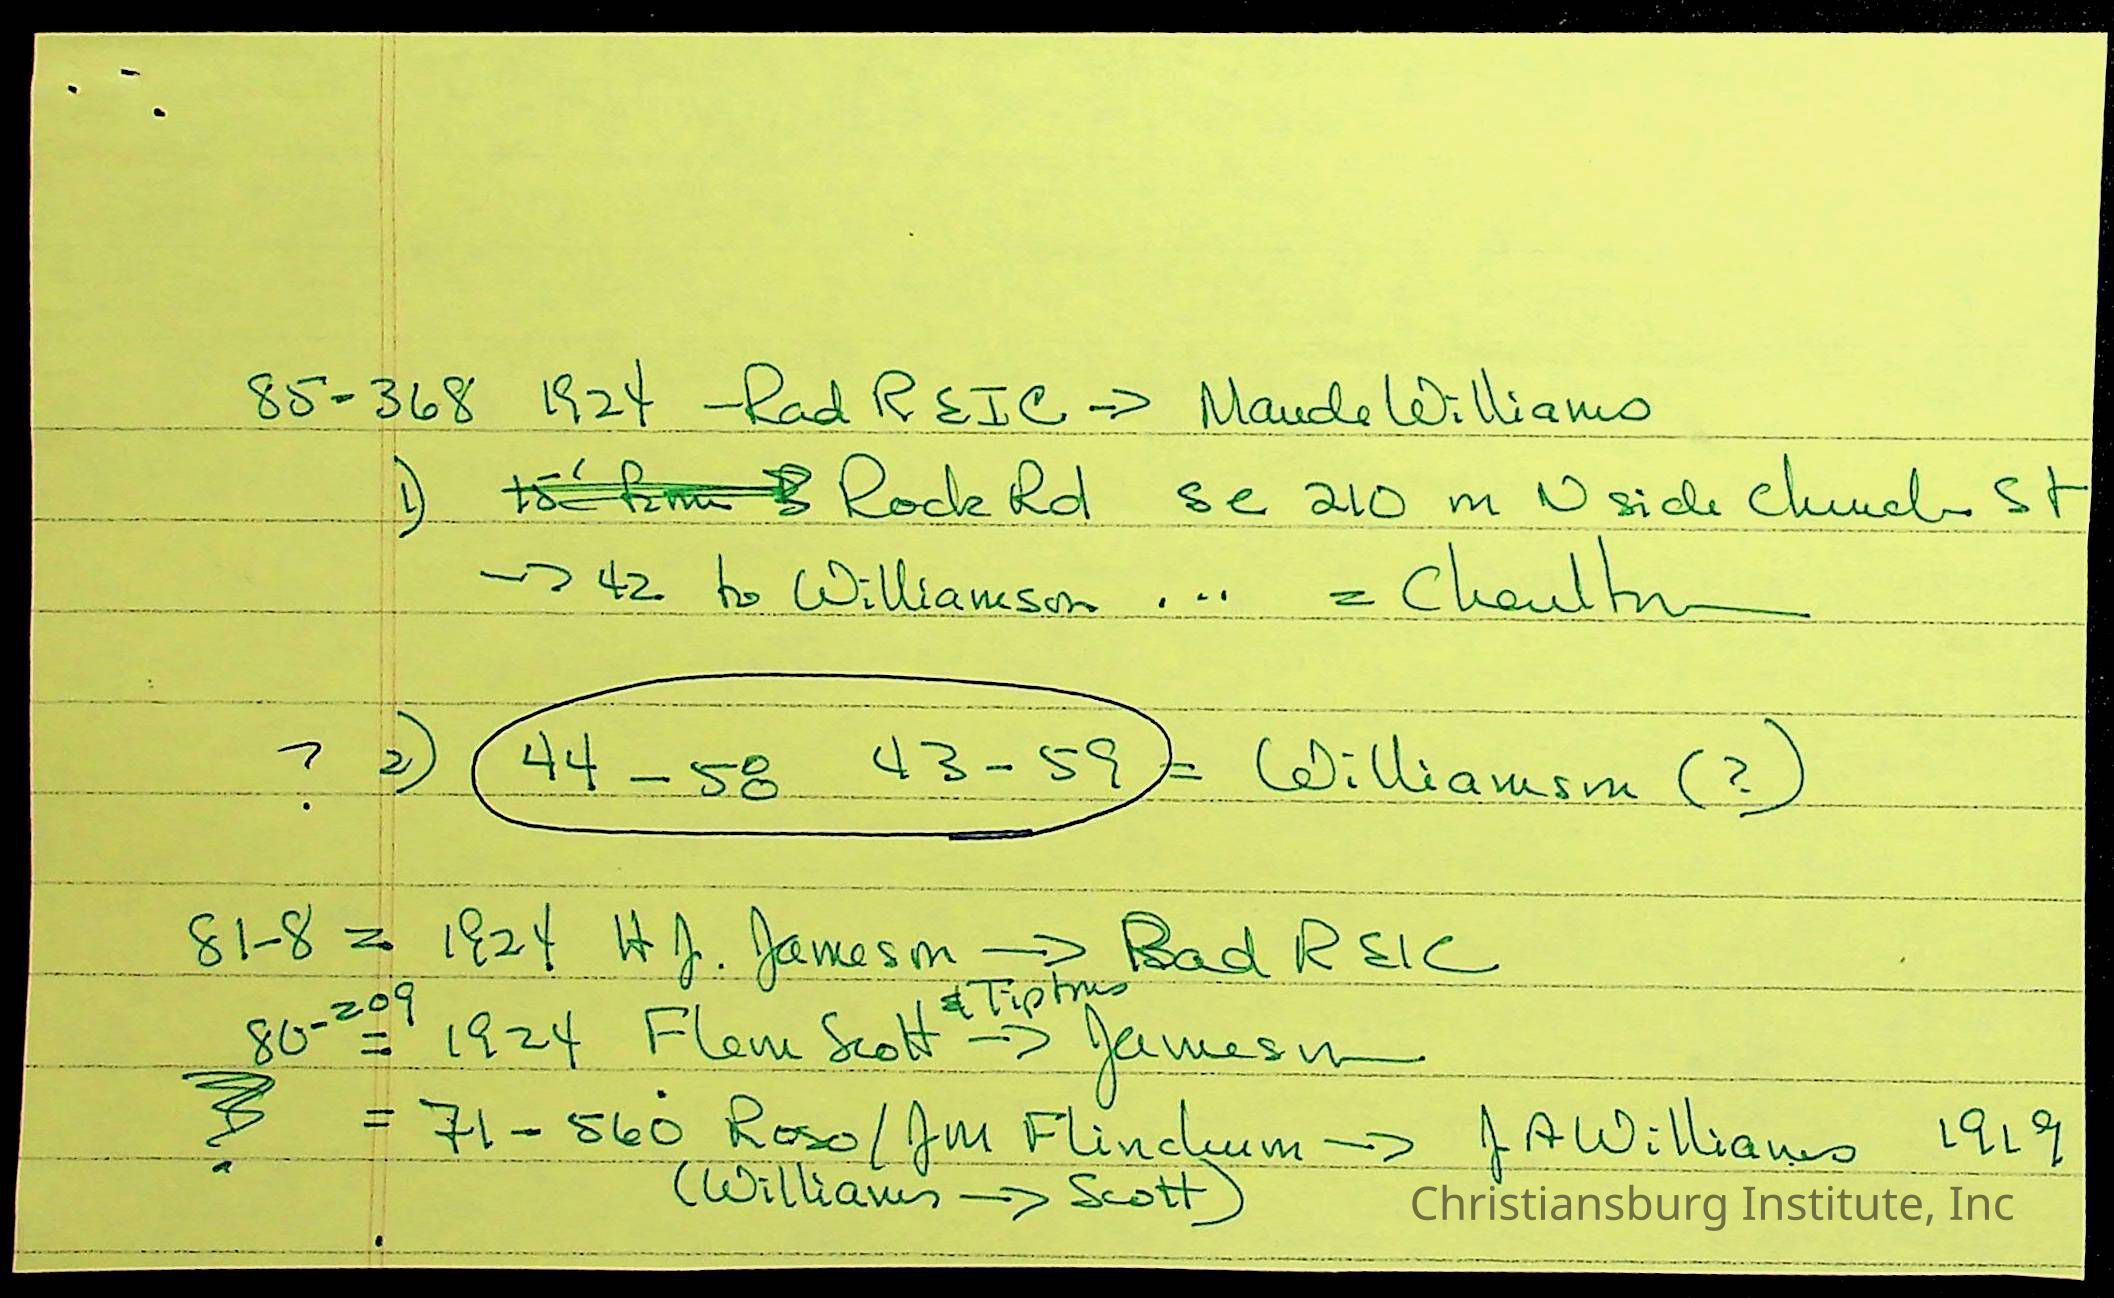 85-368 1924 - Rad R EIC → Maude Williams
1) Rock Rd se 210 m N side Church St
→ 42 to Williamson ... = Charlton
? 2) 44 - 58 43 - 59 = Williamson (?)
81-8 = 1924 H J. Jameson → Rad R EIC
& Tiptons
80-209 = 1924 Flem Scott → Jameson
= 71-560 Roso / Jm Flinchum → J A Williams 1919
(Williams → Scott)
Christiansburg Institute, Inc